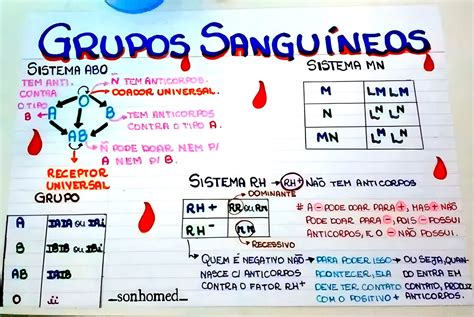 GRUPOS SANGUÍNEOS
SISTEMA ABO
N TEM ANTICORPOS.
DOADOR UNIVERSAL.
TEM ANTI.
CONTRA
O TIPO
B
A
O
B
AB
TEM ANTICORPOS
CONTRA O TIPO A.
Ñ PODE DOAR NEM P/
A NEM P/ B.
RECEPTOR
UNIVERSAL
SISTEMA MN
M LM LM
N LN LN
MN LM LN
GRUPO
A IAIA OU IAi
B IBIB OU IBi
AB IAIB
O ii
SISTEMA RH → RH+ NÃO TEM ANTICORPOS
DOMINANTE
RH+ RR OU RR
RH-
RECESSIVO
# A - PODE DOAR PARA +, MAS + NÃO
PODE DOAR PARA -, POIS - POSSUI
ANTICORPOS, E O - NÃO POSSUI.
QUEM É NEGATIVO NÃO
NASCE C/ ANTICORPOS
CONTRA O FATOR RH+
→ PARA PODER ISSO
ACONTECER, ELA
DEVE TER CONTATO
COM O POSITIVO +
→ OU SEJA, QUAN-
DO ENTRA EM
CONTATO, PRODUZ
ANTICORPOS.
_sonhomed_